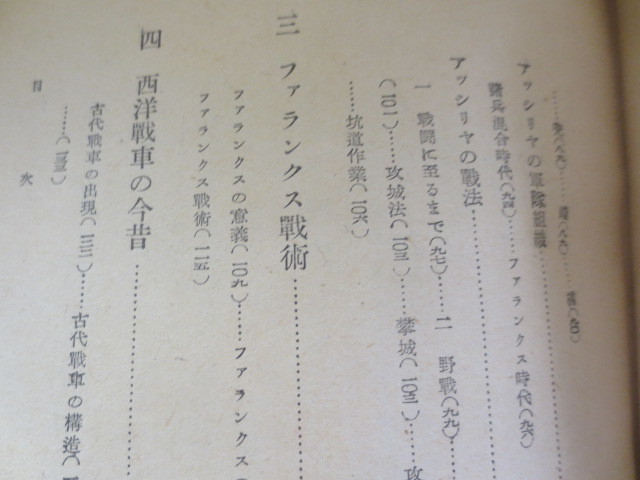 アッシリヤの軍隊組織
騎兵混合時代(九四)……ファランクス時代(九六)
アッシリヤの戰法……
一 戰鬪に至るまで(九七)……二 野戰(九九)……
(一〇一)……攻城法(一〇三)……攀城(一〇三)……攻
……坑道作業(一〇六)
三 ファランクス戰術……
ファランクスの意義(一〇九)……ファランクスの
ファランクス戰術(一一五)
四 西洋戰車の今昔……
古代戰車の出現(一三一)……古代戰車の構造(
目 次